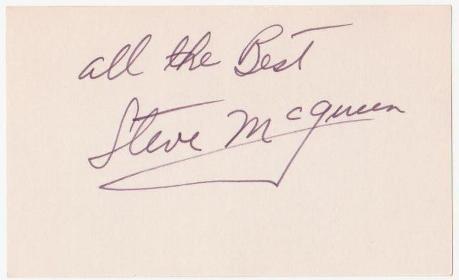 all the Best
Steve McQueen